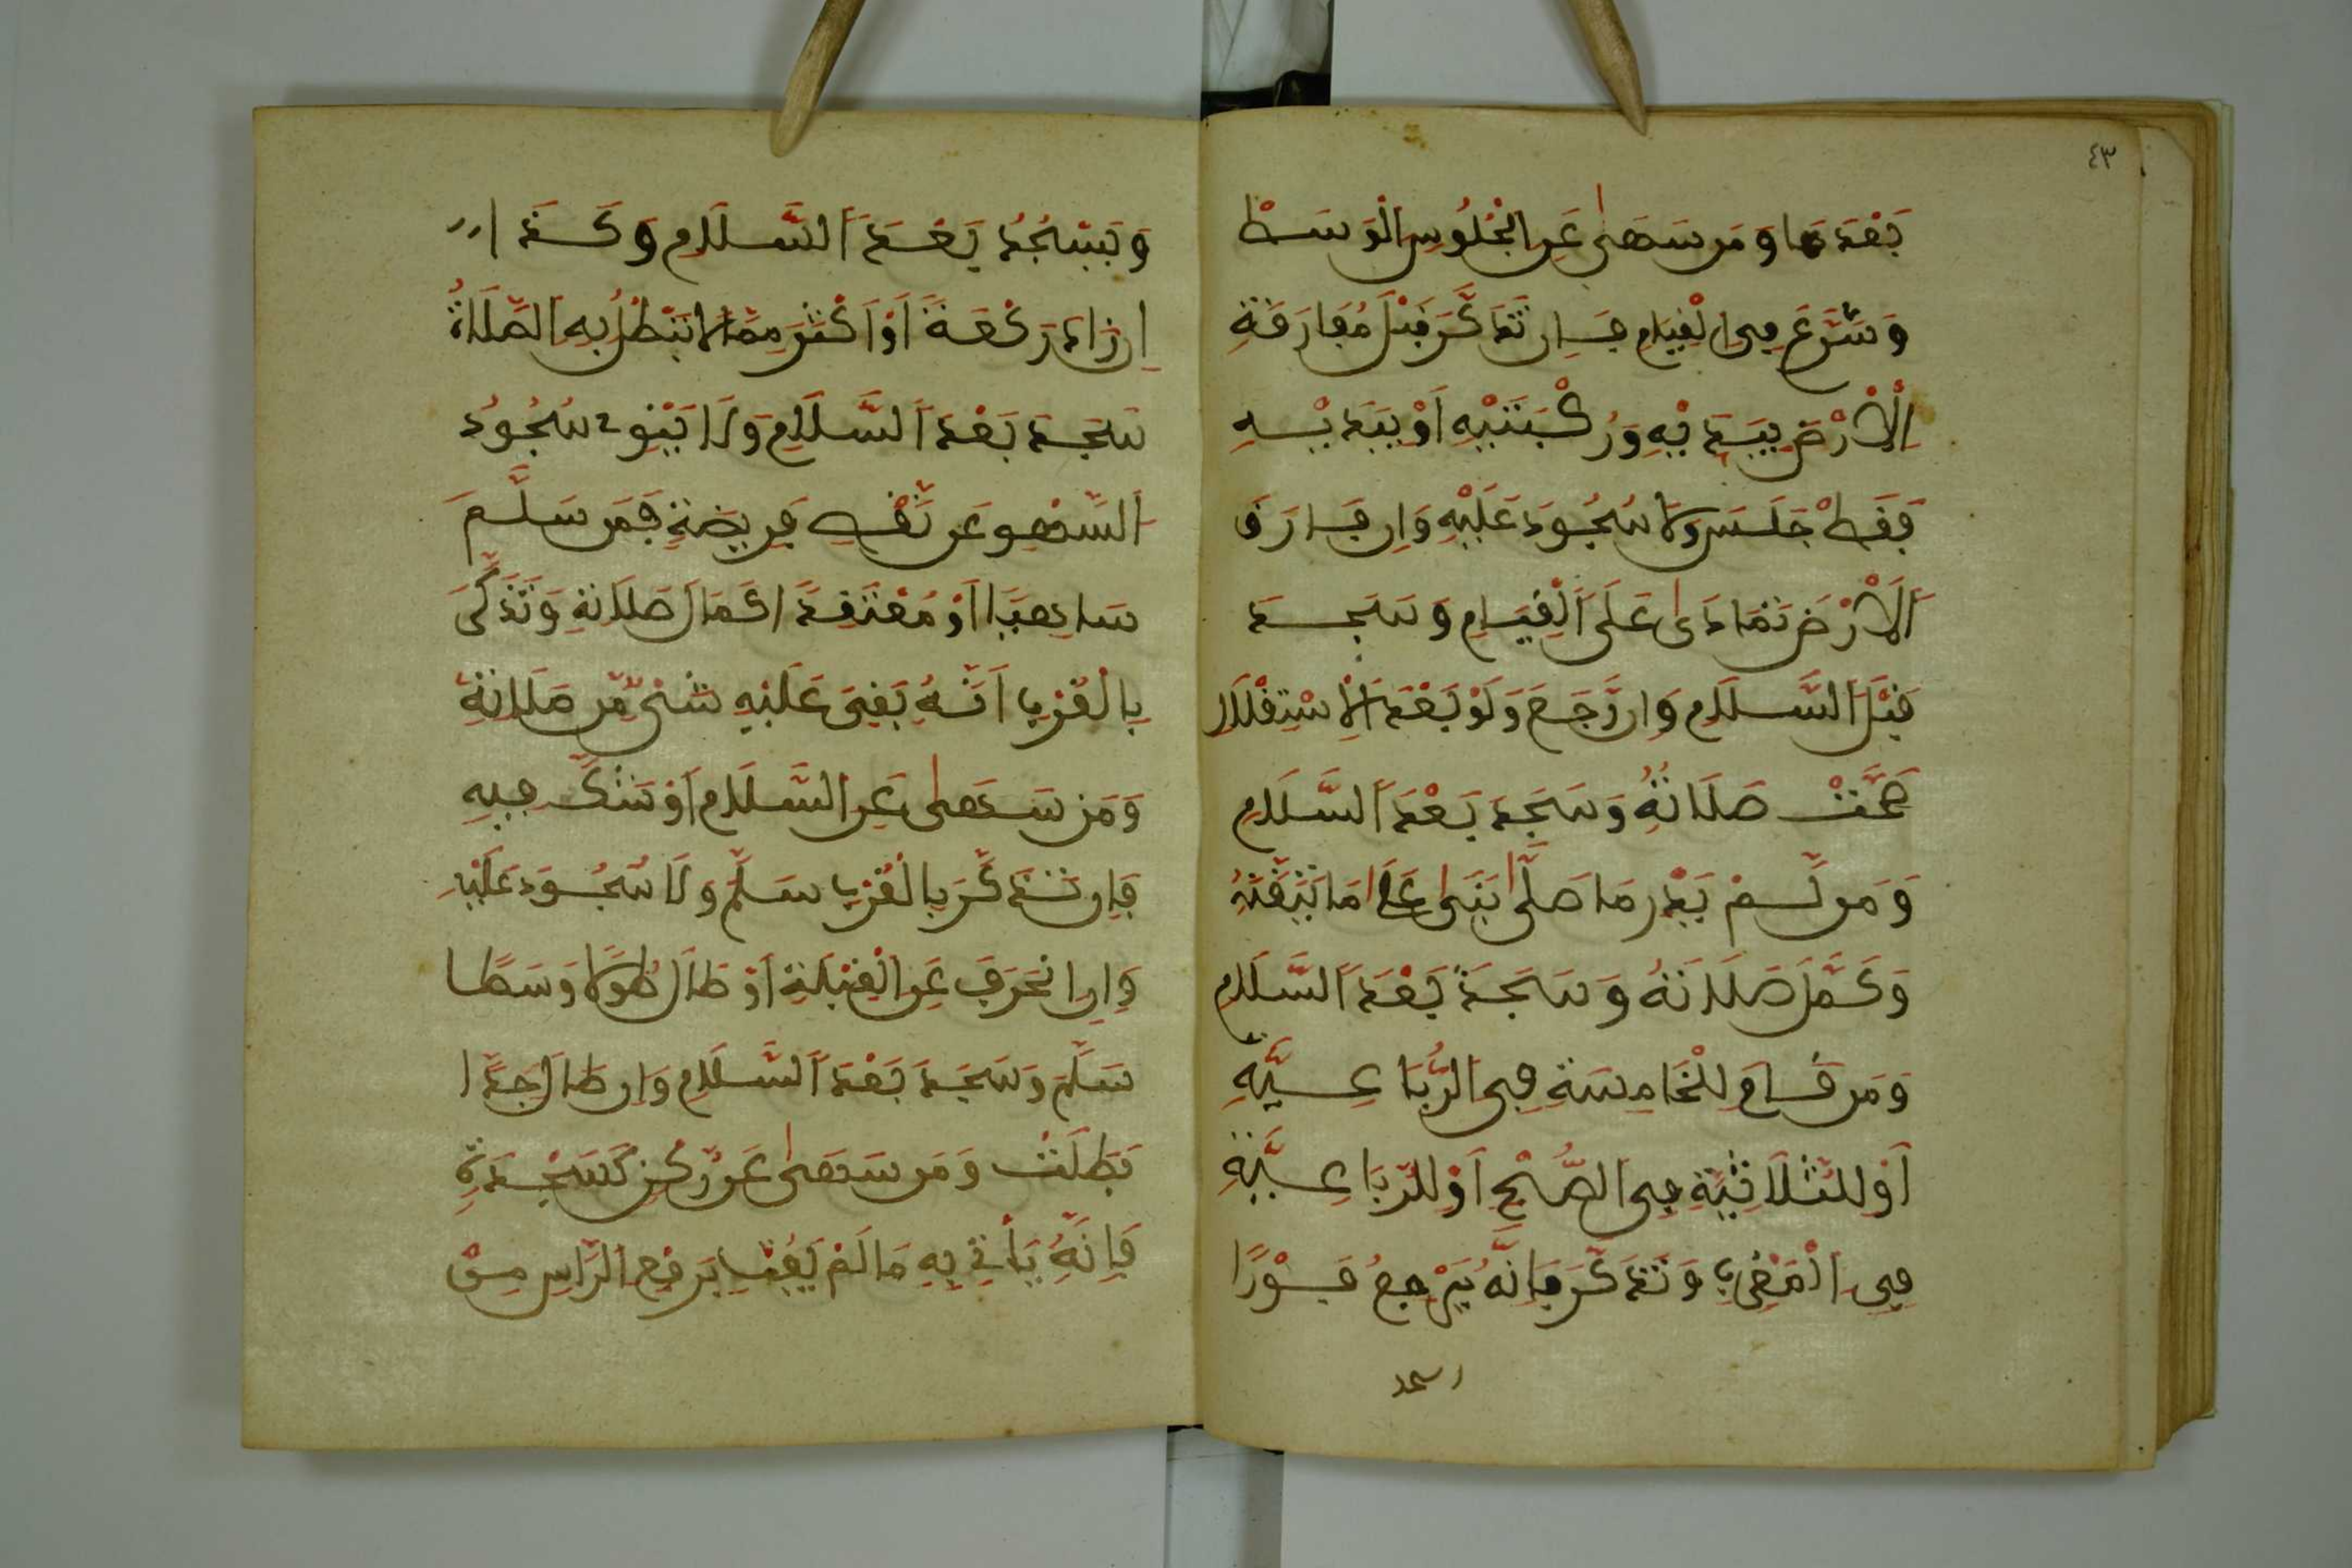 ٤٣
بَعْدَهَا وَمَن سَهَى عَنِ الْجُلُوسِ الْوَسَطْ
وَشَرَعَ فِي الْقِيَامِ فَإِن تَذَكَّرَ قَبْلَ مُفَارَقَةِ
الْأَرْضِ بِيَدَيْهِ وَرُكْبَتَيْهِ أَوْ بِيَدَيْهِ
فَقَطْ جَلَسَ وَلَا سُجُودَ عَلَيْهِ وَإِن فَارَقَ
الْأَرْضَ تَمَادَى عَلَى الْقِيَامِ وَسَجَدَ
قَبْلَ السَّلَامِ وَإِن رَّجَعَ وَلَوْ بَعْدَ الْاسْتِقْلَالِ
صَحَّتْ صَلَاتُهُ وَسَجَدَ بَعْدَ السَّلَامِ
وَمَن لَّمْ يَدْرِ مَا صَلَّى بَنَى عَلَى مَا تَيَقَّنَهُ
وَكَمَّلَ صَلَاتَهُ وَسَجَدَ بَعْدَ السَّلَامِ
وَمَن قَامَ لِلْخَامِسَةِ فِي الرُّبَاعِيَّةِ
أَوْ لِلثَّلَاثِيَّةِ فِي الصُّبْحِ أَوْ لِلرُّبَاعِيَّةِ
فِي الْمَغْرِبِ وَتَذَكَّرَ فَإِنَّهُ يَرْجِعُ فَوْرًا
وَيَسْجُدُ بَعْدَ السَّلَامِ وَكَذَا
إِن زَادَ رَكْعَةً أَوْ أَكْثَرَ مِمَّا لَا تَبْطُلُ بِهِ الصَّلَاةُ
سَجَدَ بَعْدَ السَّلَامِ وَلَا يَنُوبُ سُجُودُ
السَّهْوِ عَن نَقْصِ فَرِيضَةٍ فَمَن سَلَّمَ
سَاهِيًا أَوْ مُعْتَقِدًا كَمَالَ صَلَاتِهِ وَتَذَكَّرَ
بِالْقُرْبِ أَنَّهُ بَقِيَ عَلَيْهِ شَيْءٌ مِّن صَلَاتِهِ
وَمَن سَهَى عَنِ السَّلَامِ أَوْ شَكَّ فِيهِ
فَإِن تَذَكَّرَ بِالْقُرْبِ سَلَّمَ وَلَا سُجُودَ عَلَيْهِ
وَإِن انْحَرَفَ عَنِ الْقِبْلَةِ أَوْ طَالَ طُولًا وَسَطًا
سَلَّمَ وَسَجَدَ بَعْدَ السَّلَامِ وَإِن طَالَ جِدًّا
بَطَلَتْ وَمَن سَهَى عَن رُّكْنٍ كَسَجْدَةٍ
فَإِنَّهُ يَأْتِي بِهِ مَا لَمْ يَفُتْ بِرَفْعِ الرَّأْسِ مِنْ